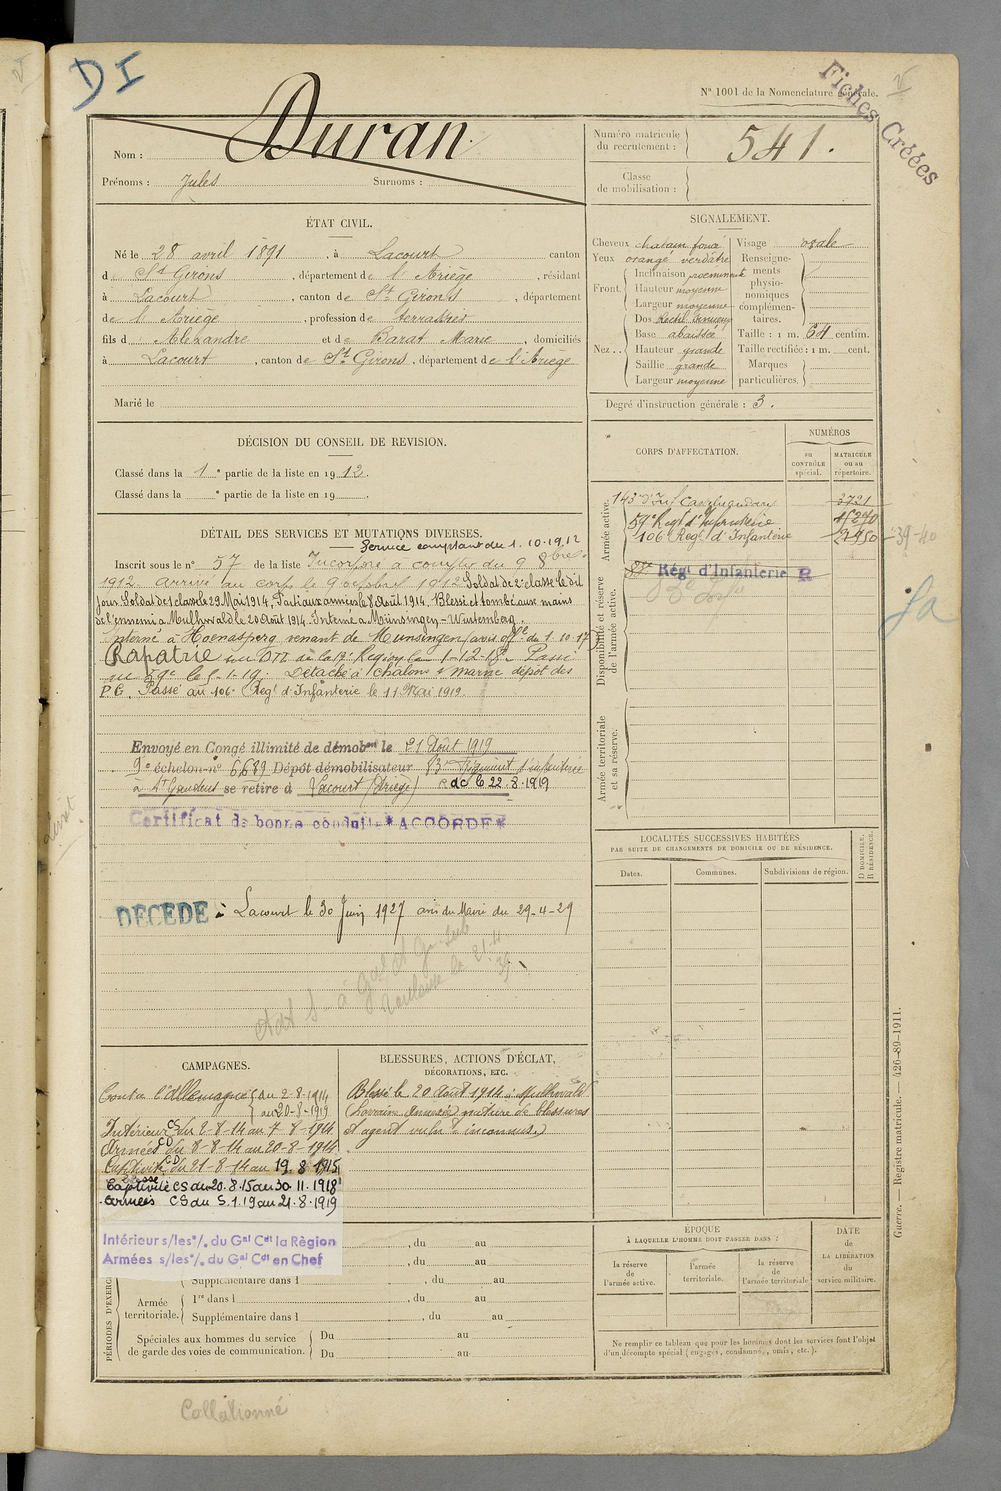 DI
N° 1001 de la Nomenclature générale.
Fiches Créées
Nom : Duran
Prénoms : Jules Surnoms :
Numéro matricule du recrutement : 541.
Classe de mobilisation :
ÉTAT CIVIL.
Né le 28 avril 1891, à Lacourt canton
d St Girons, département de l'Ariège, résidant
à Lacourt, canton de St Girons, département
de l'Ariège, profession de terrassier
fils d Alexandre et de Barat Marie, domiciliés
à Lacourt, canton de St Girons, département de l'Ariège
Marié le
SIGNALEMENT.
Cheveux chatain foncé
Yeux orangé verdâtre
Front. Inclinaison proéminent
Hauteur moyenne
Largeur moyenne
Nez.. Dos
Base abaissée
Hauteur grande
Saillie grande
Largeur moyenne
Visage ovale
Renseignements physionomiques complémentaires.
Taille : 1 m. 64 centim.
Taille rectifiée : 1 m. cent.
Marques particulières.
Degré d'instruction générale : 3.
DÉCISION DU CONSEIL DE REVISION.
Classé dans la 1e partie de la liste en 1912.
Classé dans la e partie de la liste en 19
DÉTAIL DES SERVICES ET MUTATIONS DIVERSES.
Service comptant du 1.10.1912
Inscrit sous le n° 57 de la liste Incorporé à compter du 9 8bre
1912. Arrivé au corps le 9 octobre 1912 Soldat de 2e classe le dit
jour. Soldat de 1e classe le 29 Mai 1914. Parti aux armées le 8 Août 1914. Blessé et tombé aux mains
de l'ennemi à Mulhwald le 20 Août 1914. Interné à Münsingen-Wurtemberg.
Interné à Hoenasperg venant de Munsingen (avis offel du 1.10.17)
Rapatrié au DTI de la 17e Région le 1-12-18. Passé
au 59e le 5-1-19. Détaché à Chalons s/ Marne dépôt des
P.G. Passé au 106e Regt d'Infanterie le 11 Mai 1919.
Envoyé en Congé illimité de démobon le 21 Août 1919
9e échelon n° 6689 Dépôt démobilisateur 83e Régiment d'infanterie
à St Gaudens se retire à Lacourt (Ariège) Rdc le 22.8.1919
Certificat de bonne conduite *ACCORDÉ*
DECEDE à Lacourt le 30 Juin 1927 avis du Maire du 29-4-29
CORPS D'AFFECTATION.
NUMÉROS
au CONTRÔLE spécial.
MATRICULE ou au répertoire.
Armée active.
143e d'Inf Castelnaudary 3721
59e Regt d'Infanterie
106e Regt d'Infanterie
39-40
Disponibilité et réserve de l'armée active.
Régt d'Infanterie R
Armée territoriale et sa réserve.
LOCALITÉS SUCCESSIVES HABITÉES
PAR SUITE DE CHANGEMENTS DE DOMICILE OU DE RÉSIDENCE.
Dates. Communes. Subdivisions de région. D DOMICILE. R RÉSIDENCE.
CAMPAGNES.
Contre l'Allemagne du 2-8-1914
au 20-8-1919
Intérieur CS du 2-8-14 au 7-8-1914
Armées CD du 8-8-14 au 20-8-1914
Captivité CD du 21-8-14 au 19.8.1915
Captivité CS du 20.8.15 au 30.11.1918
Armées CS du 5.1.19 au 21.8.1919
Intérieur s/les °/. du Gal Cdt la Région
Armées s/les °/. du Gal Cdt en Chef
BLESSURES, ACTIONS D'ÉCLAT,
DÉCORATIONS, ETC.
Blessé le 20 Août 1914 à Mulhwald
(Lorraine annexée) nature de blessures
et agent vulnt inconnus.)
, du au
, du au
Supplémentaire dans l , du au
Armée territoriale. 1re dans l , du au
Supplémentaire dans l , du au
Spéciales aux hommes du service de garde des voies de communication. Du au
Du au
PÉRIODES D'EXERC
ÉPOQUE
À LAQUELLE L'HOMME DOIT PASSER DANS :
la réserve de l'armée active.
l'armée territoriale.
la réserve de l'armée territoriale
DATE de LA LIBÉRATION du service militaire.
Ne remplir ce tableau que pour les hommes dont les services font l'objet
d'un décompte spécial (engagés, condamnés, omis, etc.).
Guerre. — Registre matricule. — 426-89-1911.
Collationné